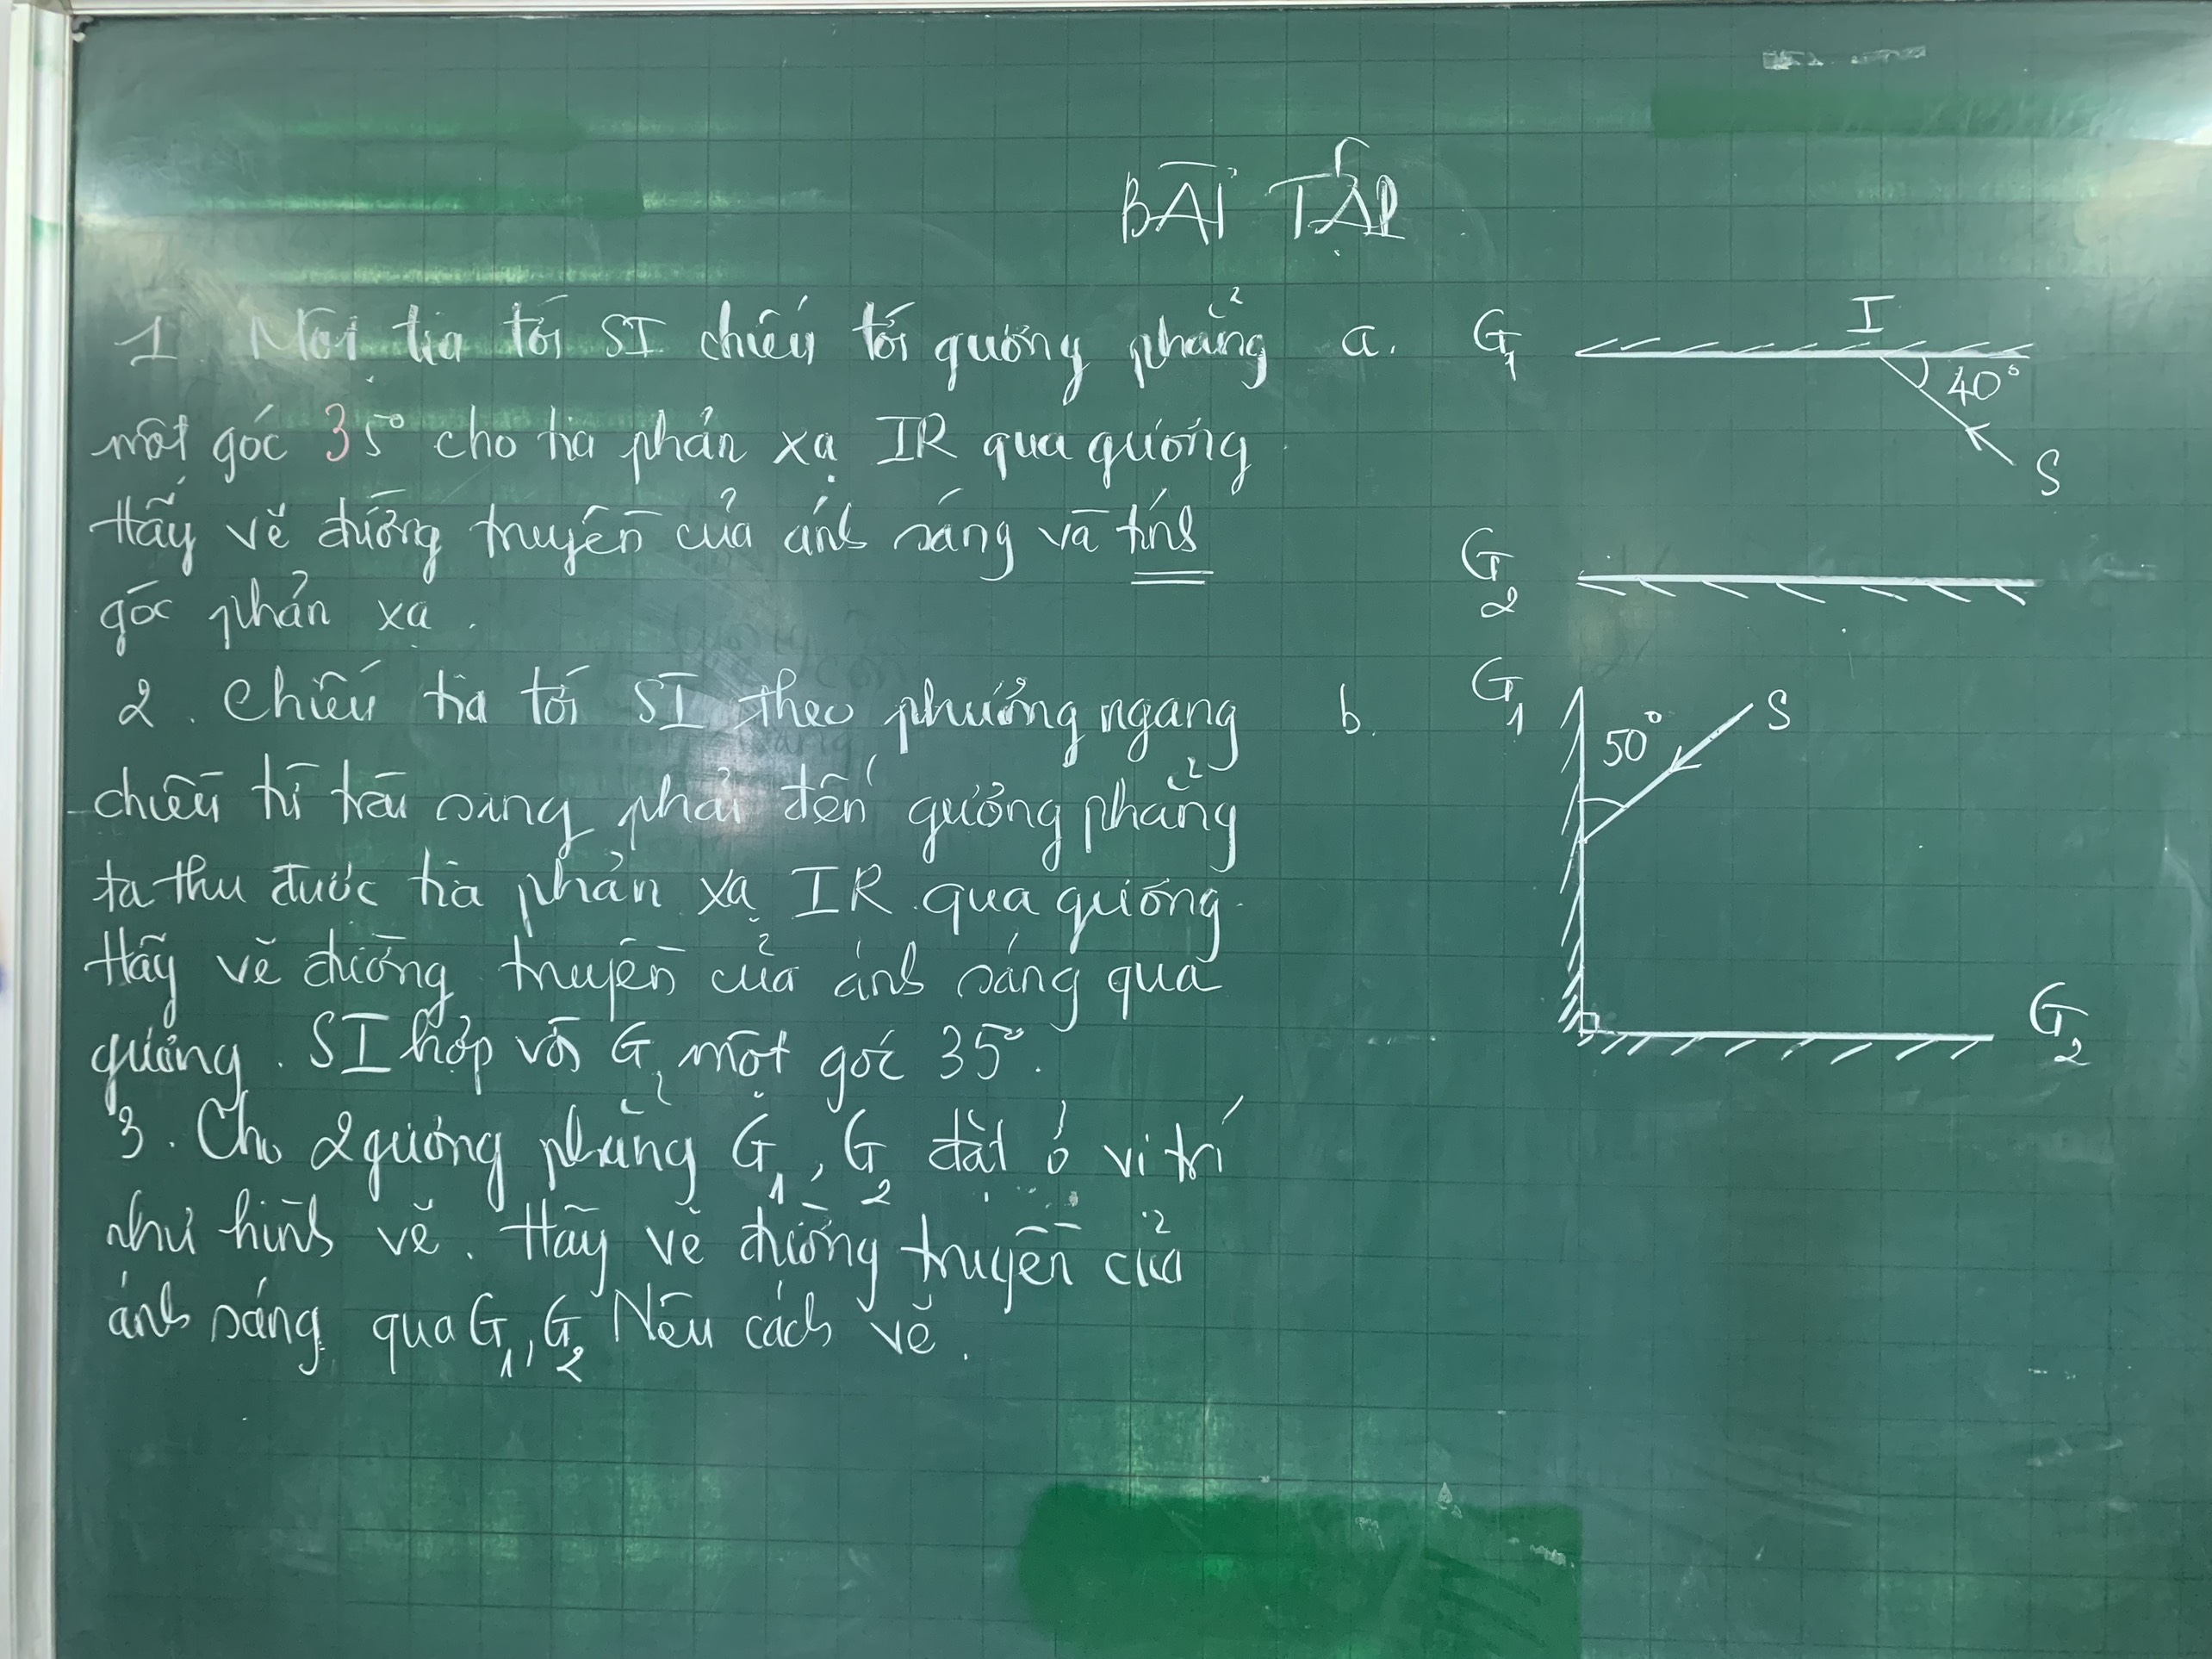 BÀI TẬP
1. Một tia tới SI chiếu tới gương phẳng
một góc 35° cho tia phản xạ IR qua gương
Hãy vẽ đường truyền của ánh sáng và tính
góc phản xạ.
2. Chiếu tia tới SI theo phương ngang
chiều từ trái sang phải đến gương phẳng
ta thu được tia phản xạ IR qua gương.
Hãy vẽ đường truyền của ánh sáng qua
gương. SI hợp với G, một góc 35°.
3. Cho 2 gương phẳng G1, G2 đặt ở vị trí
như hình vẽ. Hãy vẽ đường truyền của
ánh sáng qua G1, G2 Nêu cách vẽ.
a. G1 I
40°
S
G2
b. G1 S
50°
G2